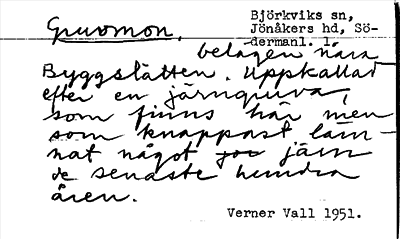 Gruvmon.
Björkviks sn,
Jönåkers hd, Sö-
dermanl. l.
belägen nära
Byggslätten. Uppkallad
efter en järngruva,
som finns här men
som knappast läm-
nat något jär järn
de senaste hundra
åren.
Verner Vall 1951.